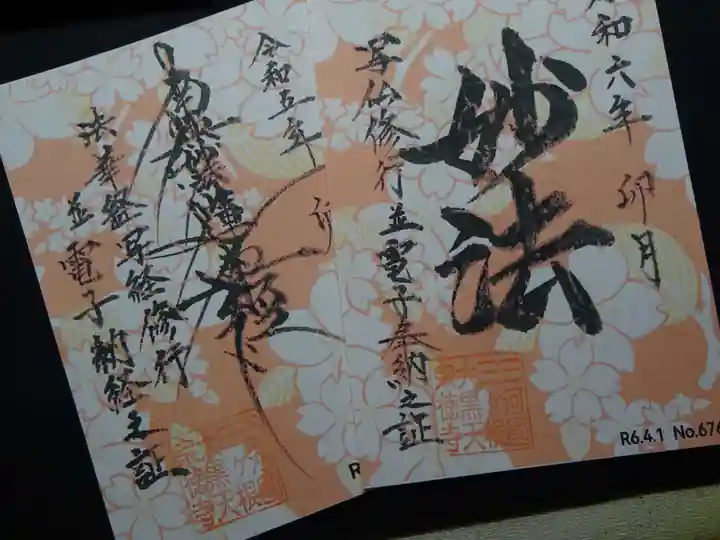 和六年
卯月
妙法
写仏修行並電子奉納之証
R6.4.1 No.676
令和五年
南無妙法蓮華経
法華経写経修行
並電子納経之証
R